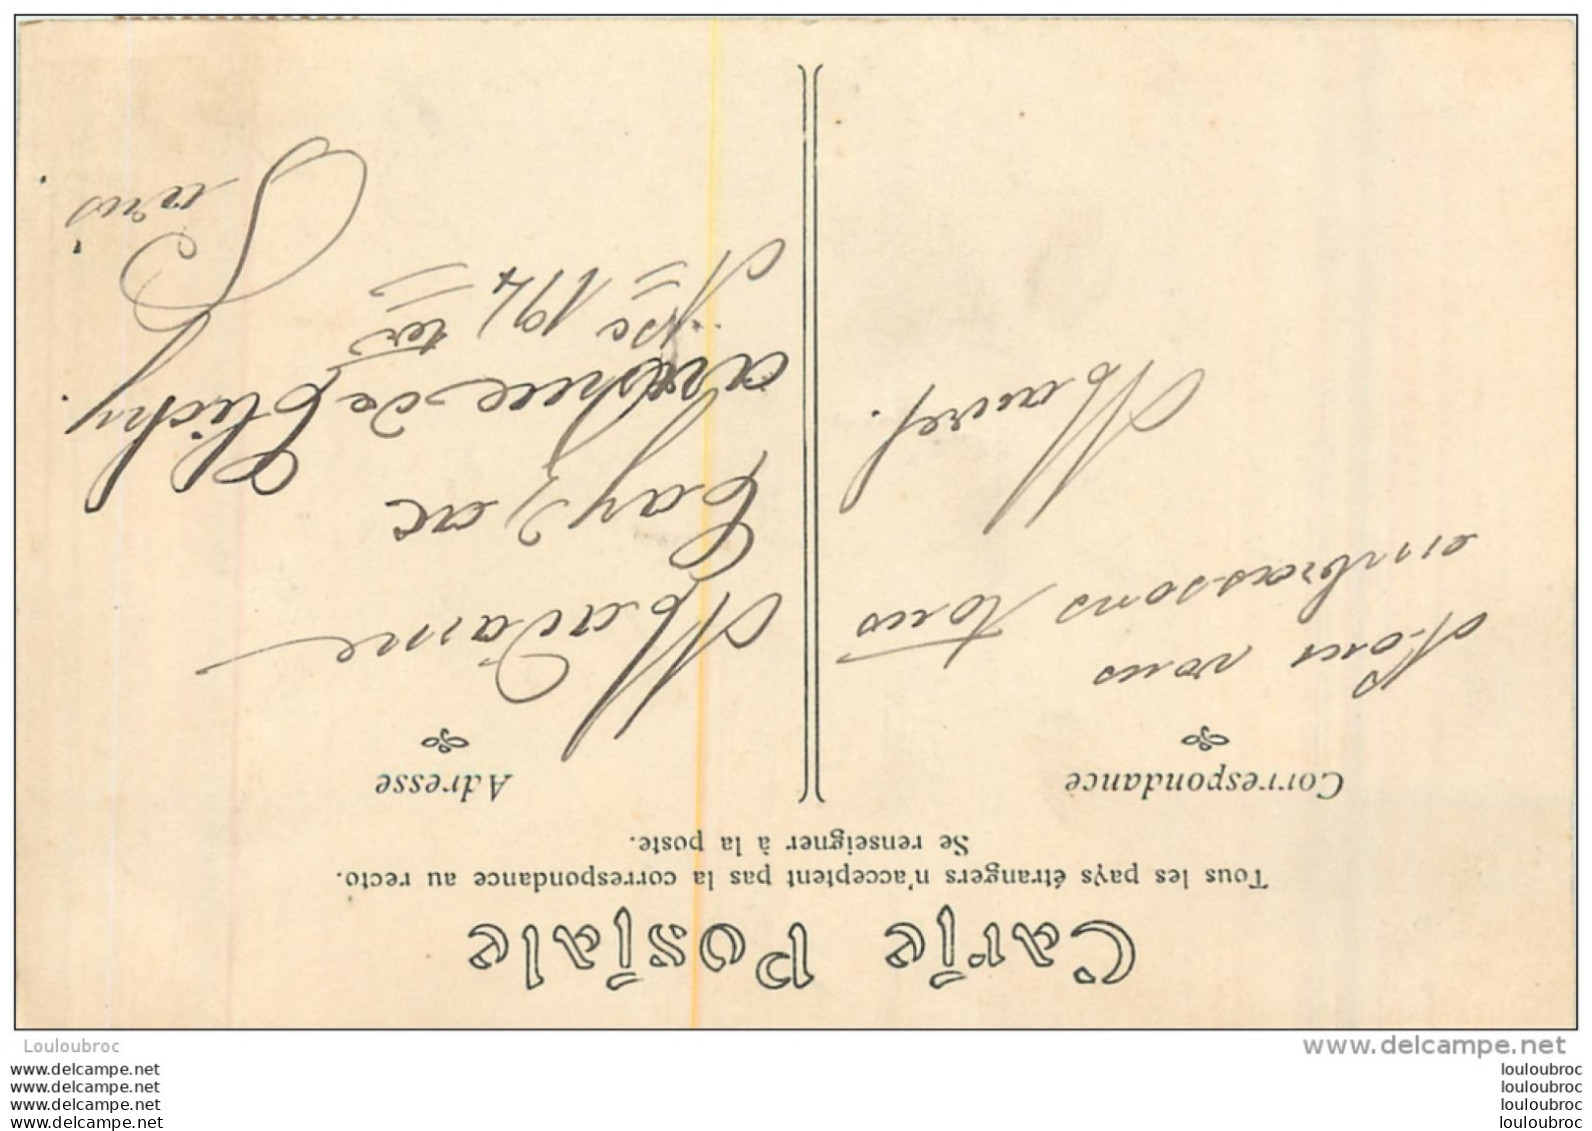 Carte Postale
Tous les pays étrangers n'acceptent pas la correspondance au recto.
Se renseigner à la poste.
Correspondance
Nous vous
embrassons tous
Adresse
Madame
Cayzac
avenue de Clichy.
No 194 ter
Paris.
Louloubroc
www.delcampe.net
www.delcampe.net
www.delcampe.net
www.delcampe.net
www.delcampe.net
louloubroc
louloubroc
louloubroc
louloubroc